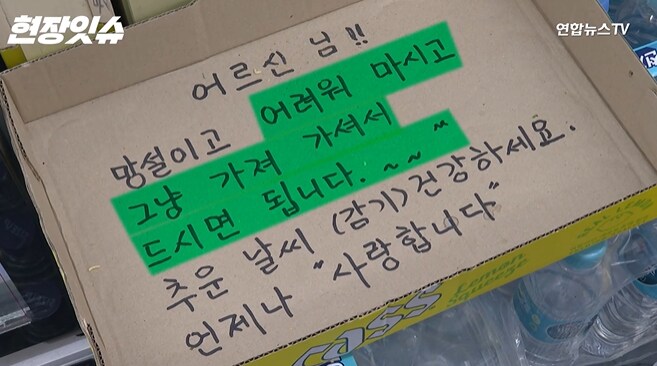 현장잇슈
연합뉴스TV
어르신 님!!
망설이고 어려워 마시고
그냥 가져 가셔서
드시면 됩니다.~~~
추운 날씨 (감기)건강하세요.
언제나 "사랑합니다"
Cass
Lemon
Squeeze